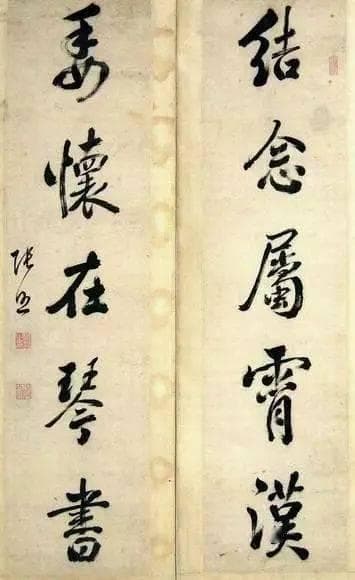 結念屬霄漢
委懷在琴書
張照